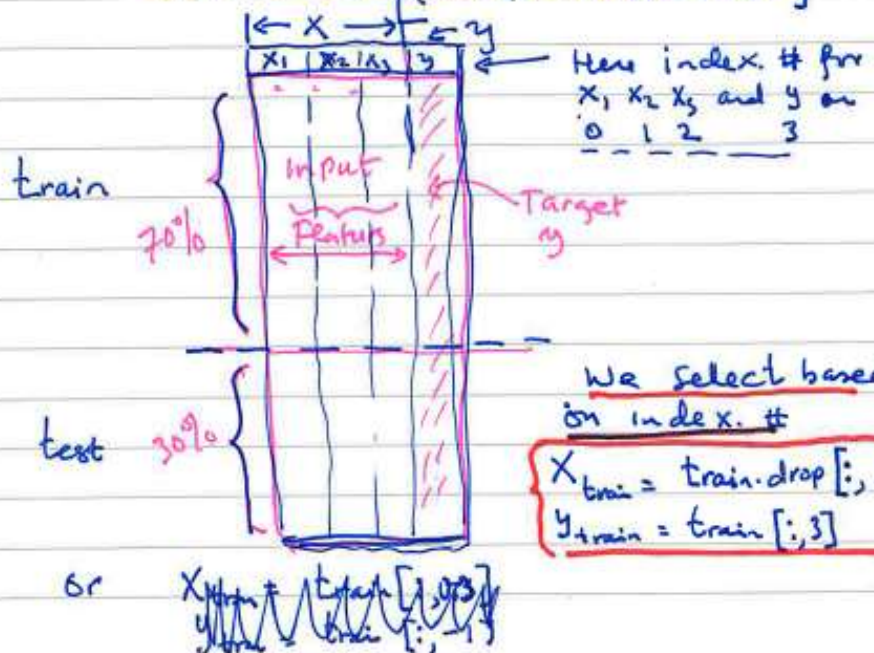 X
y
x1 x2 x3 y
Here index. # for
x1 x2 x3 and y
0 1 2 3
train
70%
Input
Featurs
Target
y
test
30%
We select based
on index. #
X train = train.drop[:,
y train = train[:,3]
or